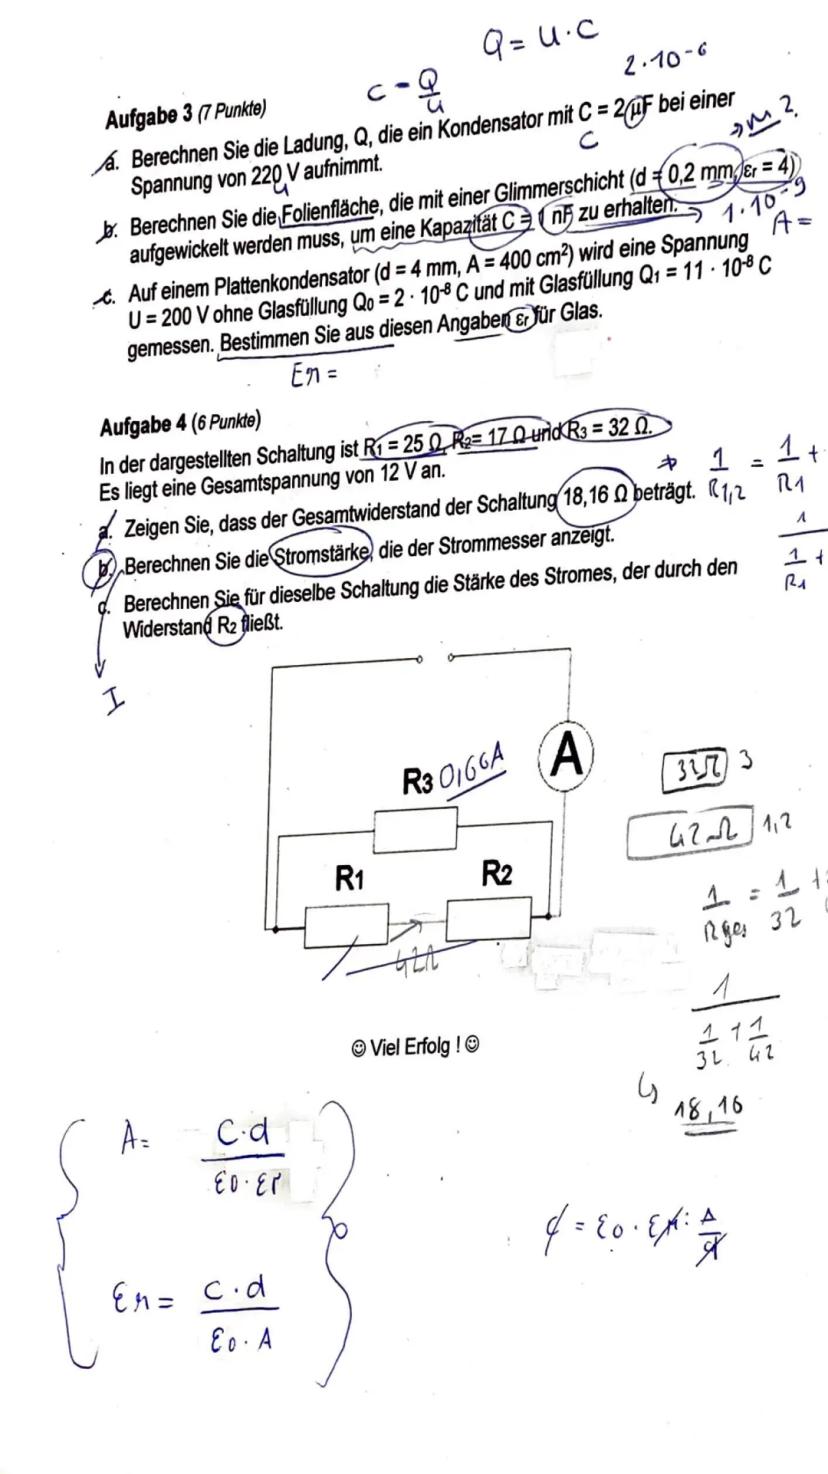 Q = U · C
C = Q/U
2 · 10⁻⁶
Aufgabe 3 (7 Punkte)
a. Berechnen Sie die Ladung, Q, die ein Kondensator mit C = 2 µF bei einer
C
Spannung von 220 V aufnimmt.
U
→ m ?
b. Berechnen Sie die Folienfläche, die mit einer Glimmerschicht (d = 0,2 mm, εr = 4)
aufgewickelt werden muss, um eine Kapazität C = 1 nF zu erhalten. → 1 · 10⁻⁹
A =
c. Auf einem Plattenkondensator (d = 4 mm, A = 400 cm²) wird eine Spannung
U = 200 V ohne Glasfüllung Q₀ = 2 · 10⁻⁸ C und mit Glasfüllung Q₁ = 11 · 10⁻⁸ C
gemessen. Bestimmen Sie aus diesen Angaben εr für Glas.
εr =
Aufgabe 4 (6 Punkte)
In der dargestellten Schaltung ist R₁ = 25 Ω, R₂= 17 Ω und R₃ = 32 Ω.
Es liegt eine Gesamtspannung von 12 V an.
1/R1,2 = 1/R1 +
a. Zeigen Sie, dass der Gesamtwiderstand der Schaltung 18,16 Ω beträgt.
1
1/R1 +
b. Berechnen Sie die Stromstärke, die der Strommesser anzeigt.
c. Berechnen Sie für dieselbe Schaltung die Stärke des Stromes, der durch den
Widerstand R₂ fließt.
I
A
R3 0,66A
32Ω 3
42Ω 1,2
R1
R2
1/Rges = 1/32 +
42Ω
1
1/32 + 1/42
☺ Viel Erfolg ! ☺
↳ 18,16
A = C·d
ε0 · εr
εr = C·d
ε0 · A
= ε0 · εr · A/d